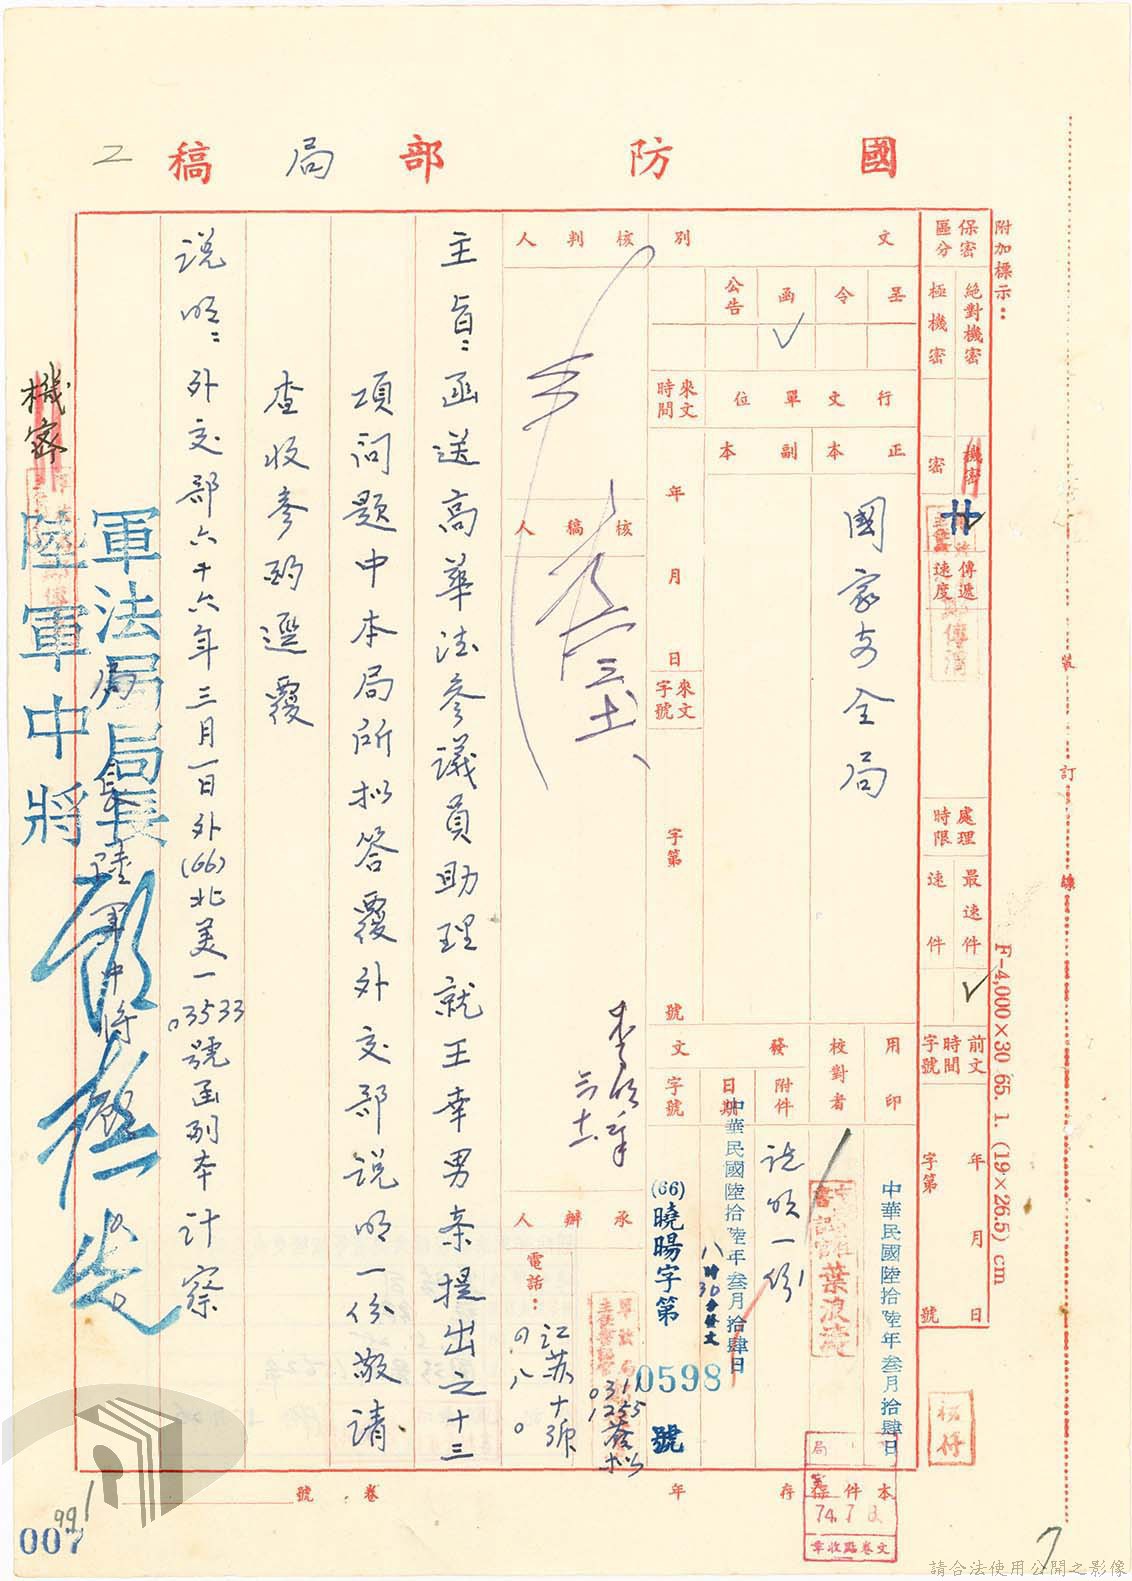 國防部局稿
附加標示：
保密區分
絕對機密
極機密
機密
密
傳遞速度
處理時限
最速件
速件
前文時間字號
年月日
字第號
文別
呈
令
函
公告
行文單位
正本
副本
國家安全局
來文時間
年月日
來文字號
字第號
用印
中華民國陸拾陸年叁月拾肆日
校對者
葉浪
發文
附件
說明一份
日期
中華民國陸拾陸年叁月拾肆日
八時30分發文
字號
(66)曉暘字第0598號
核判人
核稿人
承辦人
電話：
江蘇十號
0311
1255
主旨：函送高華法參議員助理就王幸男案提出之十三
項問題中本局所拟答覆外交部說明一份敬請
查收參酌逕覆
說明：外交部六十六年三月一日外(66)北美一03533號函副本計察
機密
局長陸軍中將
軍法局局長
陸軍中將
本件存年
卷號
74.7
文卷點收章
F-4,000×30 65. 1. (19×26.5) cm
裝
訂
線
2
7
991
007
請合法使用公開之影像